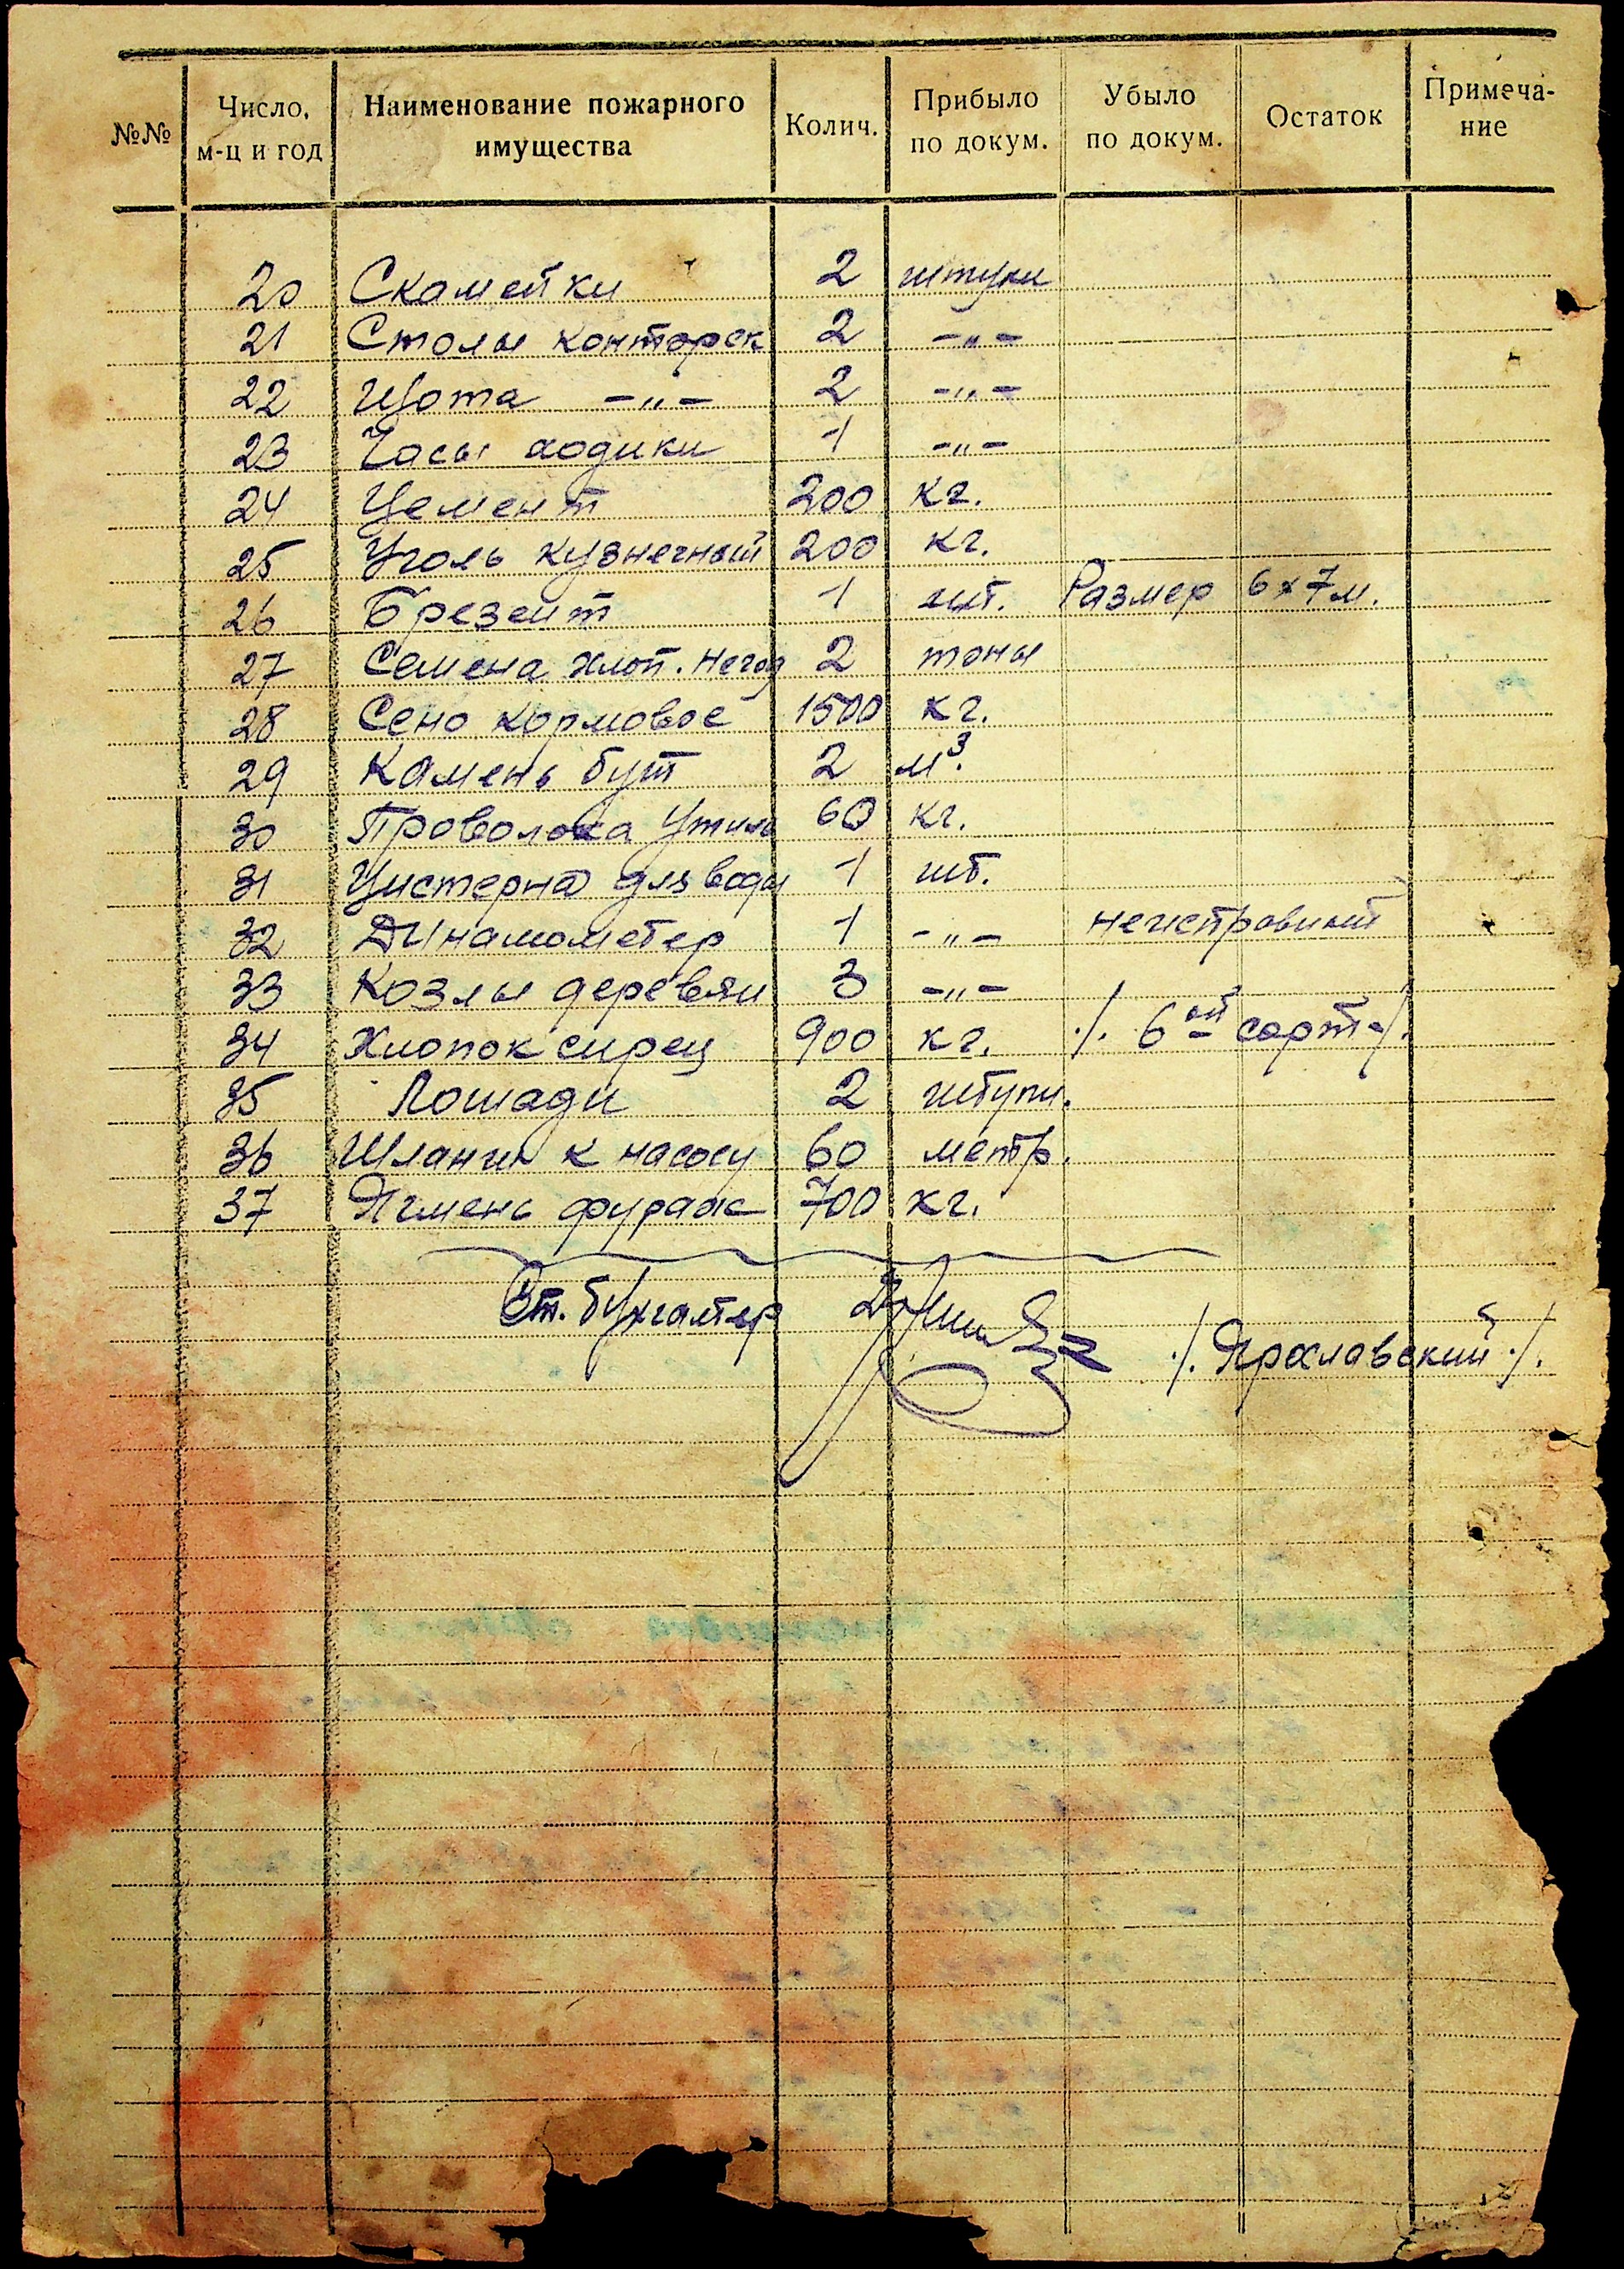 №№ Число, м-ц и год Наименование пожарного имущества Колич. Прибыло по докум. Убыло по докум. Остаток Примеча- ние
20 Скамейки 2 штуки
21 Столы конторск 2 -„-
22 Щота -„- 2 -„-
23 Часы ходики 1 -„-
24 Цемент 200 кг.
25 Уголь кузнечный 200 кг.
26 Брезент 1 шт. Размер 6x7м.
27 Семена хлоп. негод 2 тоны
28 Сено кормовое 1500 кг.
29 Камень бут 2 м³.
30 Проволока утиль 60 кг.
31 Цистерна для воды 1 шт.
32 Динамометер 1 -„- неисправный
33 Козлы деревян 3 -„-
34 Хлопок сырец 900 кг. ./. 6ой сорт ./.
35 Лошади 2 штуки.
36 Шланги к насосу 60 метр.
37 Ячмень фураж 700 кг.
Ст. бухгалтер ./. Ярославский ./.